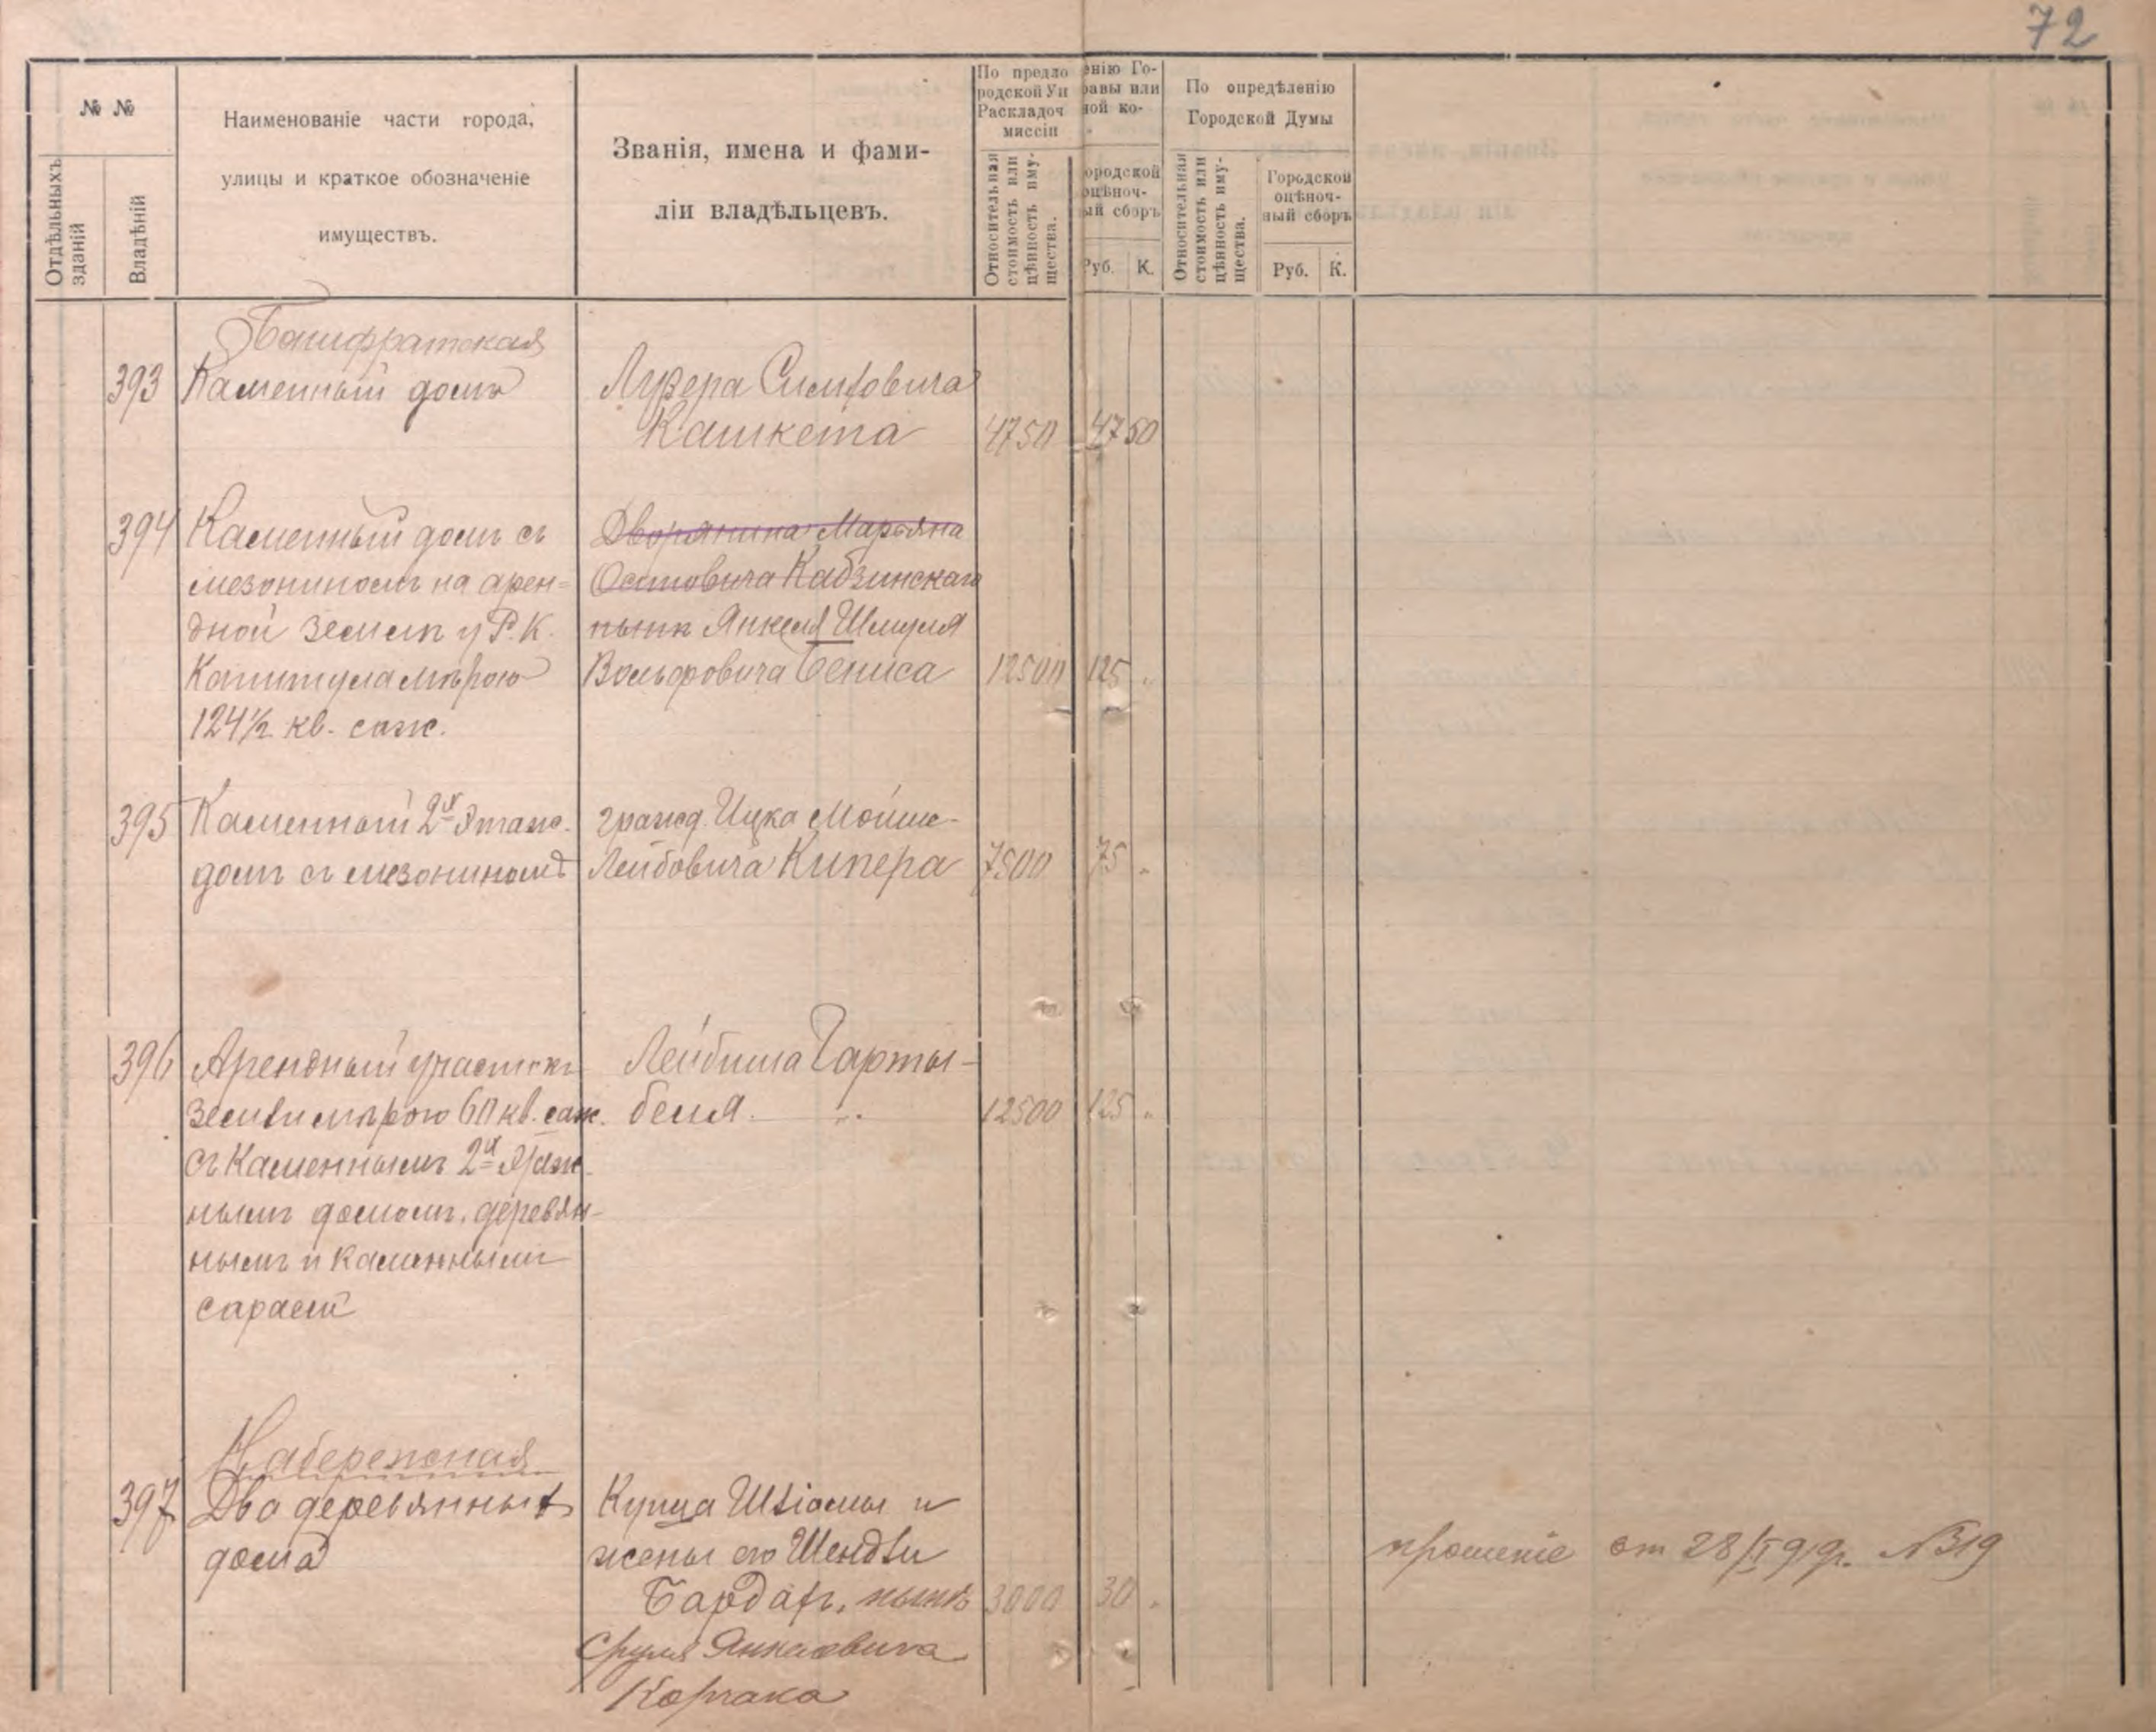 72
№ №
Отдѣльныхъ зданій
Владѣній
Наименованіе части города,
улицы и краткое обозначеніе
имуществъ.
Званія, имена и фами-
ліи владѣльцевъ.
По предло енію Го-
родской Уп равы или
Раскладоч ной ко-
миссіи
Относительная
стоимость или
цѣнность иму-
щества.
ородской
оцѣноч-
ый сборъ
Руб. К.
По опредѣленію
Городской Думы
Относительная
стоимость или
цѣнность иму-
щества.
Городской
оцѣноч-
ный сборъ
Руб. К.
393 Каменный домъ
Лузера
Кашкета 4750 47 50
394 Каменный домъ съ
мезониномъ на арен-
дной землѣ у Р. К.
Капитула мѣрою
124½ кв. саж.
Дворянина Марьяна
Кабзинскаго
нынѣ Янкеля Шмуля
Вольфовича Бениса 12500 125 "
395 Каменный 2х этаж.
домъ съ мезониномъ
гражд. Ицка Мойше-
Лейбовича Кипера 7500 75 "
396 Арендный участокъ
земли мѣрою 60 кв. саж.
съ каменнымъ 2х этаж-
нымъ домомъ, деревян-
нымъ и каменнымъ
сараемъ
Лейбиша
12500 125 "
Набережная
397 Два деревянныхъ
дома
Купца Шлiомы и
жены его Шендли
нынѣ 3000 30 "
Сруля Янкелевича
Корчака
прошеніе от 28/I №319